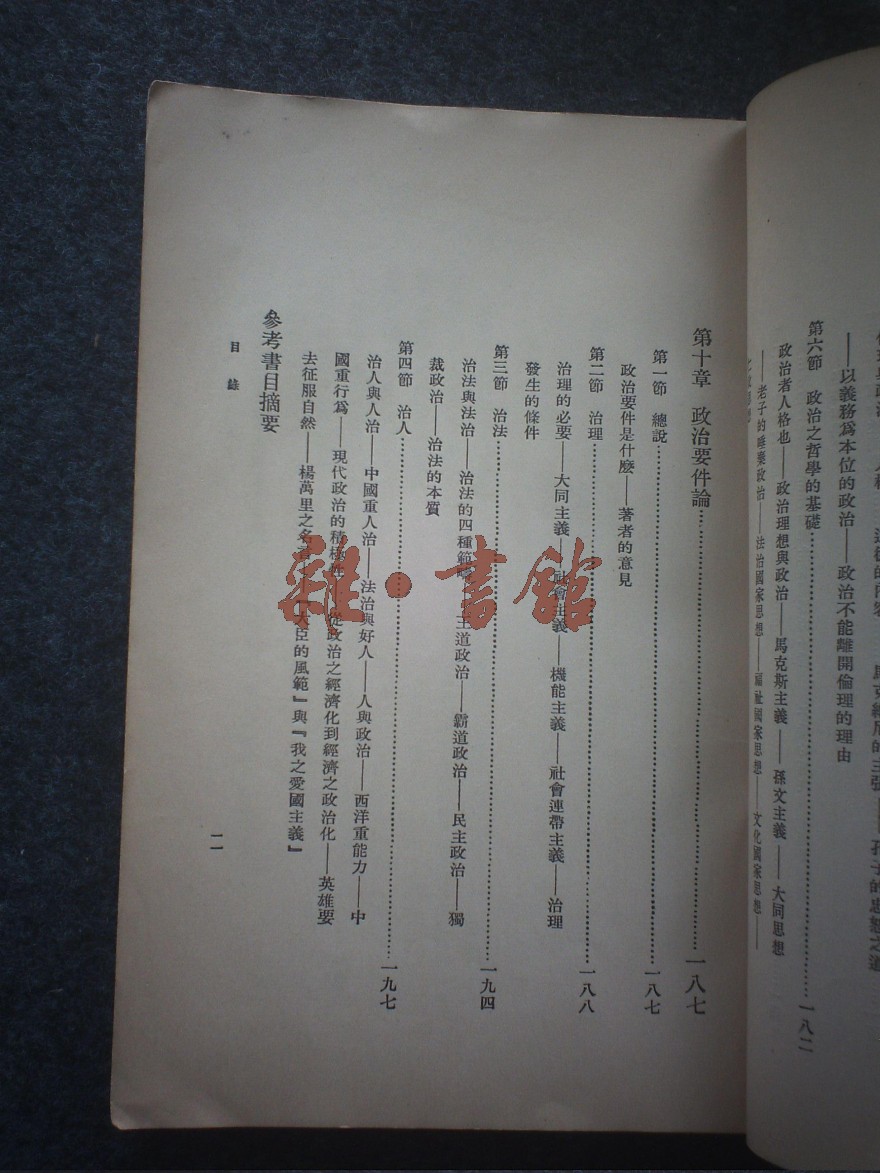 ——以義務爲本位的政治——政治不能離開倫理的理由
第六節　政治之哲學的基礎……………………一八二
政治者人格也——政治理想與政治——馬克斯主義——孫文主義——大同思想
——老子的唾棄政治——法治國家思想——福祉國家思想——文化國家思想——
第十章　政治要件論……………………一八七
第一節　總說……………………一八七
政治要件是什麼——著者的意見
第二節　治理……………………一八八
治理的必要——大同主義——社會主義——機能主義——社會連帶主義——治理
發生的條件
第三節　治法……………………一九四
治法與法治——治法的四種範疇——王道政治——霸道政治——民主政治——獨
裁政治——治法的本質
第四節　治人……………………一九七
治人與人治——中國重人治——法治與好人——人與政治——西洋重能力——中
國重行爲——現代政治的積極性——從政治之經濟化到經濟之政治化——英雄要
去征服自然——楊萬里之名著——『大臣的風範』與『我之愛國主義』
參考書目摘要
目錄
一一
雜·書館